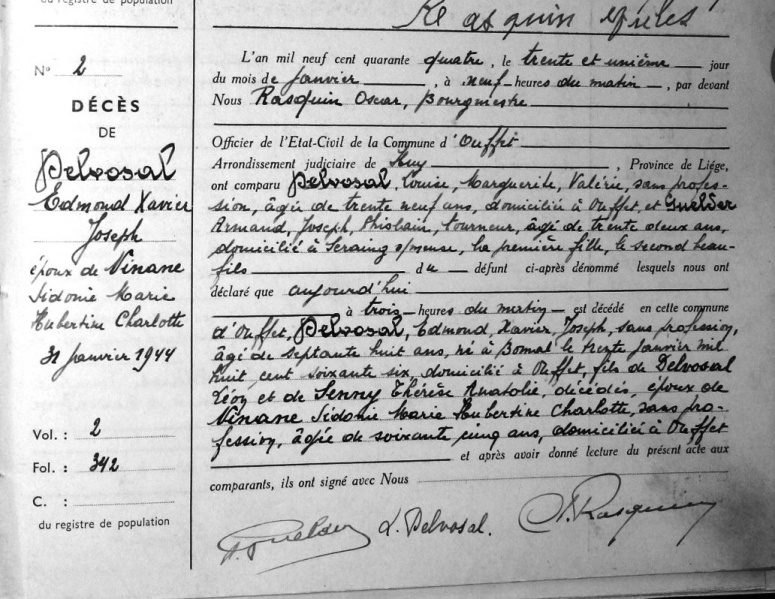 du registre de population
Rasquin
Nº 2
DÉCÈS
DE
Delvosal
Edmond Xavier
Joseph
époux de Ninane
Sidonie Marie
Hubertine Charlotte
31 janvier 1944
Vol. : 2
Fol. : 342
C. :
du registre de population
L'an mil neuf cent quarante quatre, le trente et unième jour
du mois de janvier, à neuf heures du matin, par devant
Nous Rasquin Oscar, Bourgmestre
Officier de l'Etat-Civil de la Commune d'Ouffet
Arrondissement judiciaire de Huy, Province de Liége,
ont comparu Delvosal, Louise, Marguerite, Valérie, sans profes-
sion, âgée de trente neuf ans, domiciliée à Ouffet, et Guelder
Armand, Joseph, Ghislain, tourneur, âgé de trente deux ans,
domicilié à Seraing, la première fille, le second beau-
fils du défunt ci-après dénommé lesquels nous ont
déclaré que aujourd'hui
à trois heures du matin est décédé en cette commune
d'Ouffet, Delvosal, Edmond Xavier, Joseph, sans profession,
âgé de septante huit ans, né à Bomal le trente janvier mil
huit cent soixante six, domicilié à Ouffet, fils de Delvosal
Léon et de Senny Thérèse Anatolie, décédés, époux de
Ninane Sidonie Marie Hubertine Charlotte, sans pro-
fession, âgée de soixante cinq ans, domiciliée à Ouffet
et après avoir donné lecture du présent acte aux
comparants, ils ont signé avec Nous
A. Guelder L. Delvosal. O. Rasquin